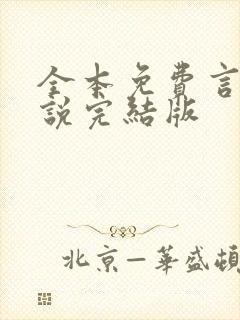 全本免費言
說完結版
北京—華盛頓